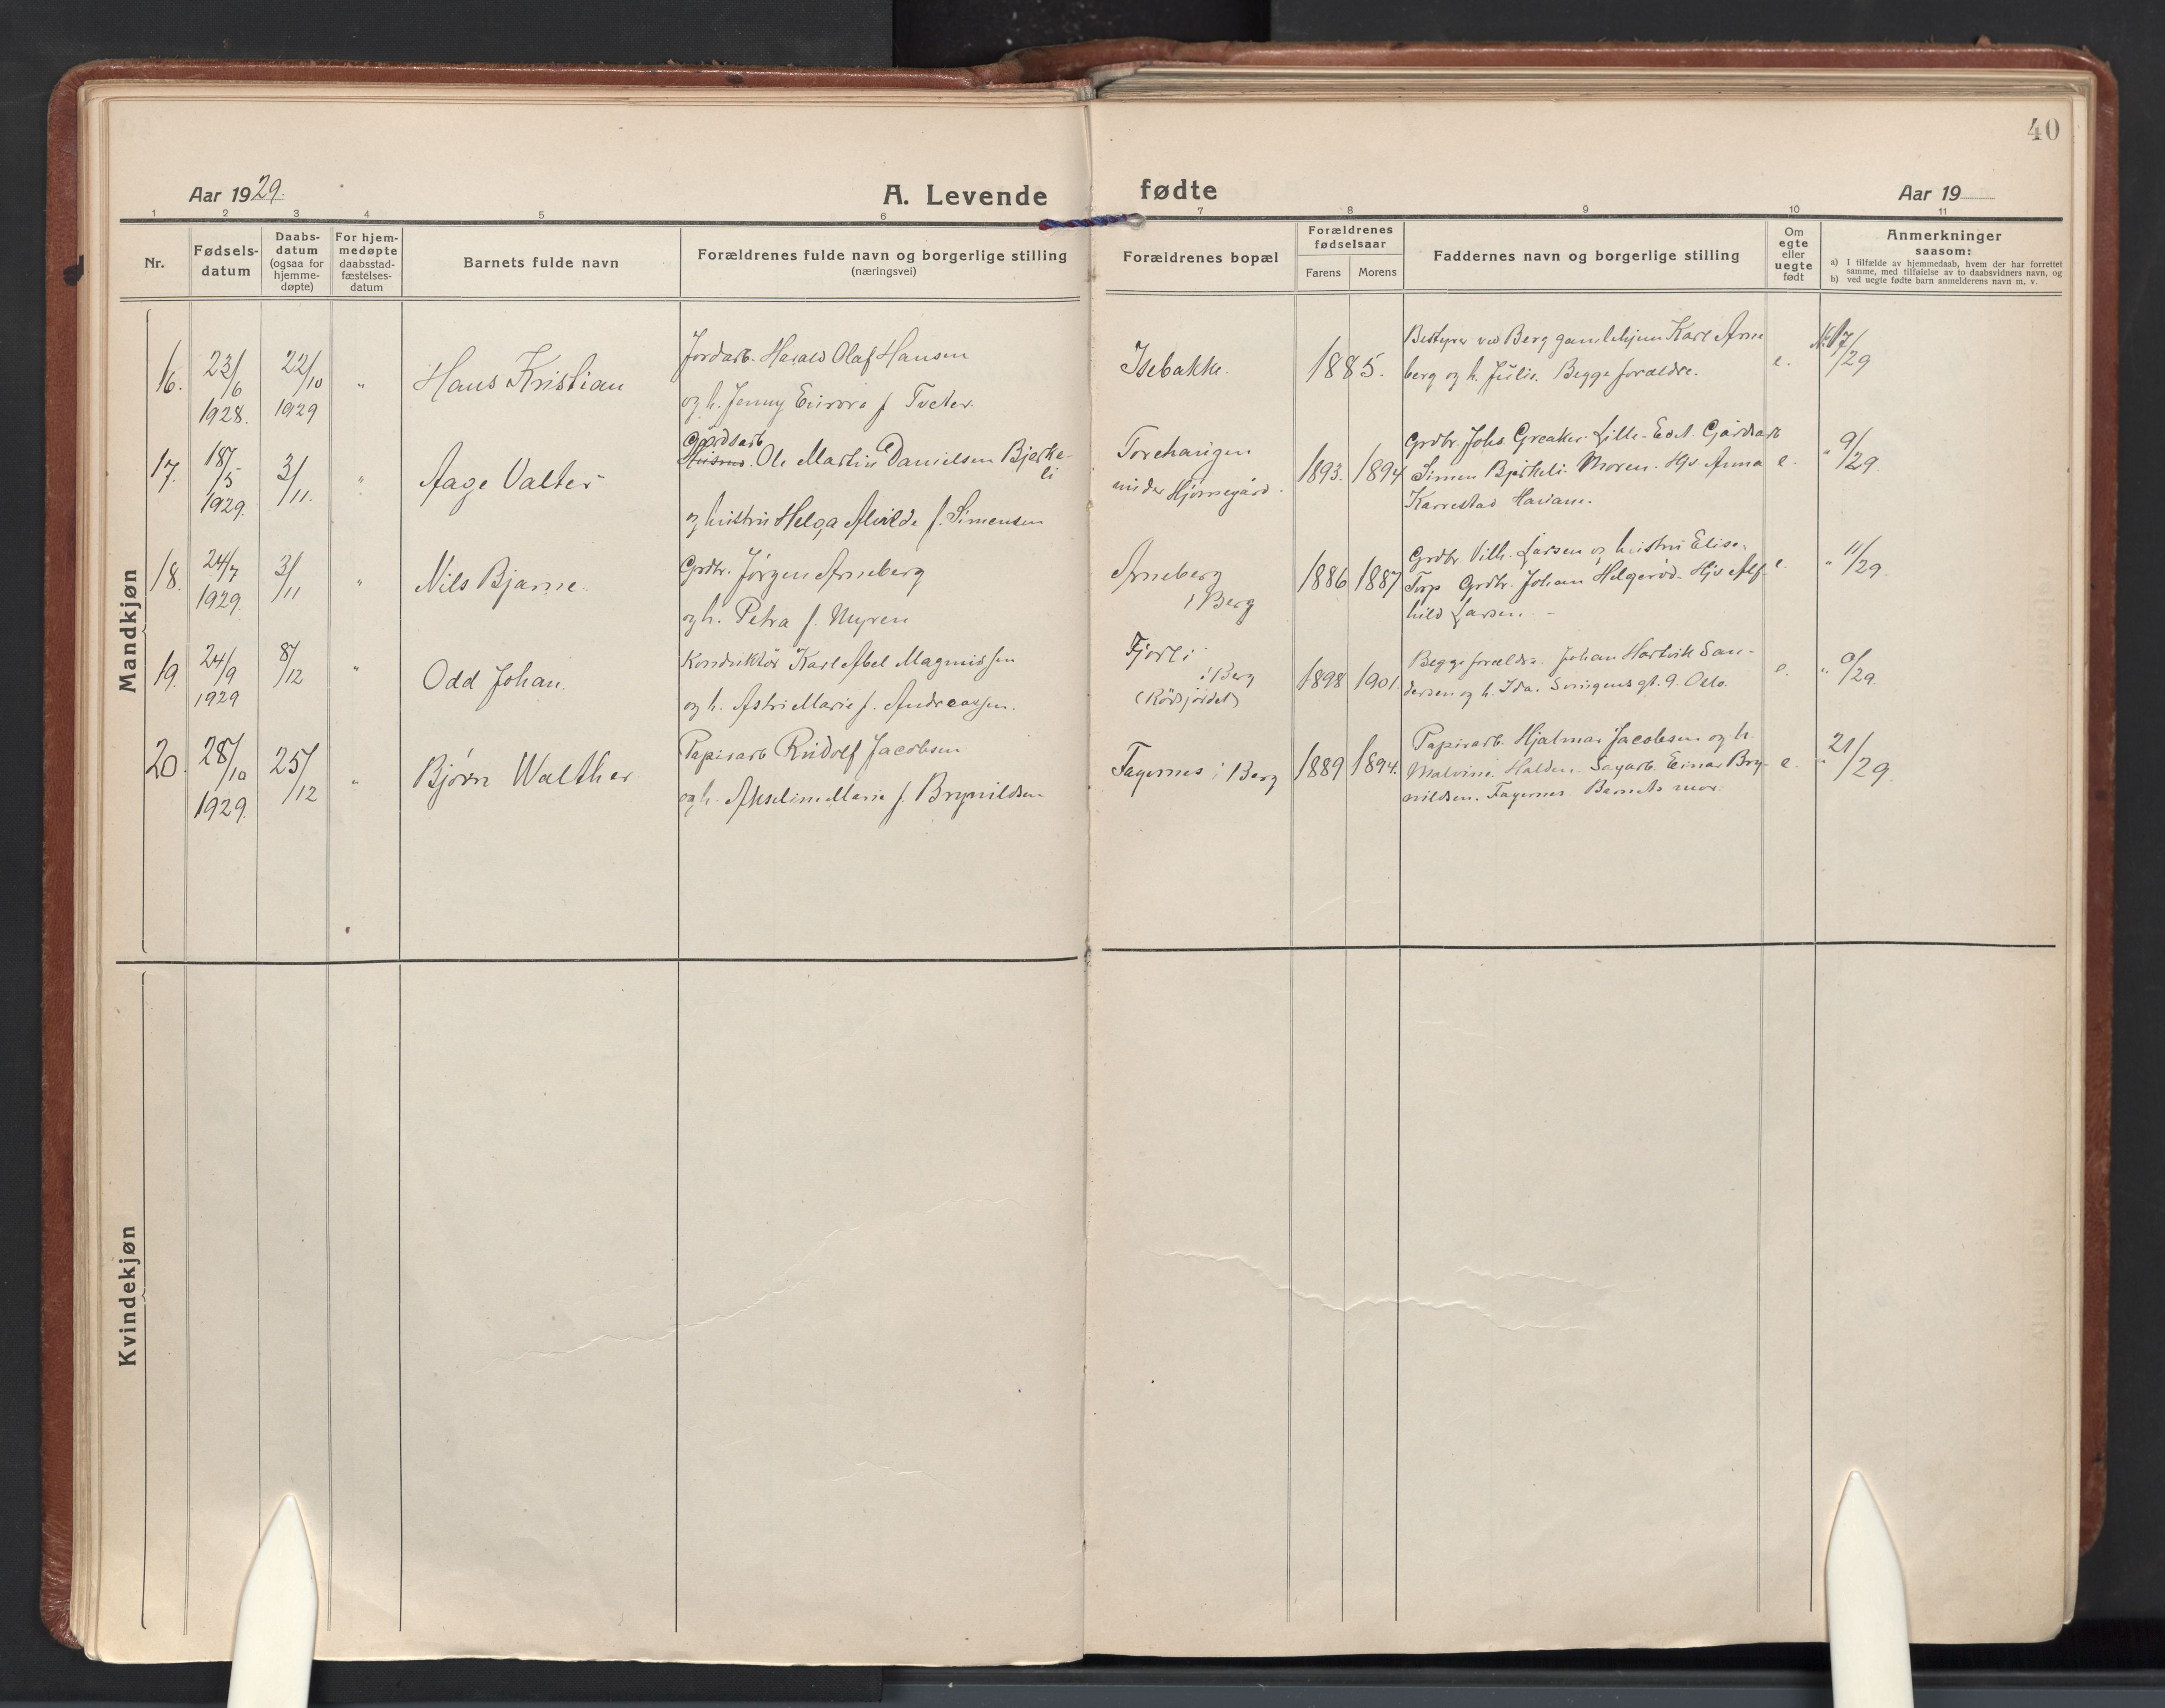 40
Aar 1929.
A. Levende
fødte
Aar 19
1 2 3 4 5 6 7 8 9 10 11
Nr.
Fødsels-
datum
Daabs-
datum
(ogsaa for
hjemme-
døpte)
For hjem-
medøpte
daabsstad-
fæstelses-
datum
Barnets fulde navn
Forældrenes fulde navn og borgerlige stilling
(næringsvei)
Forældrenes bopæl
Forældrenes
fødselsaar
Farens Morens
Faddernes navn og borgerlige stilling
Om
egte
eller
uegte
født
Anmerkninger
saasom:
a) I tilfælde av hjemmedaab, hvem der har forrettet
samme, med tilføielse av to daabsvidners navn, og
b) ved uegte fødte barn anmelderens navn m. v.
Mandkjøn
16.
23/6
1928.
22/10
1929
"
Hans Kristian
Jordarb. Harald Olaf Hansen
og h. Jenny Eurora f Tveter.
Isebakke.
1885.
Bestyrer ved Berg gamlehjem Karl Arne
berg og h. Julie. Begge forældre.
e.
17/29
17.
18/5
1929.
3/11.
"
Aage Valter
Gårdsarb
Ole Martin Danielsen Bjerke-
li
og hustru Helga Alvilde f. Simensen
Torehaugen
under Hjørnegård.
1893. 1894
Grdbr. Johs. Greaker. Lille-Edet. Gårdsarb
Simen Bjerkeli. Moren. Hjv Anna
Karrestad
e.
" 9/29.
18.
24/7
1929.
3/11
"
Nils Bjarne.
Grdbr. Jørgen Arneberg
og h. Petra f. Myren
Arneberg
i Berg
1886 1887
Grdbr. Vilh. Larsen og hustru Elise.
Torp Grdbr. Johan Helgerød. Hjv Alf-
hild Larsen.
e.
" 11/29.
19.
24/9
1929
8/12
"
Odd Johan.
Konduktør Karl Abel Magnussen
og h. Astri Marie f. Andreassen.
i Berg
(Rødsjordet)
1898 1901.
Begge forældre. Johan Hartvik San-
dersen og h. Ida. gt. 9. Oslo.
e.
" 0/29.
20.
28/10
1929.
25/12
"
Bjørn Walther
Papirarb Rudolf Jacobsen
og h. Akseline Marie f. Brynildsen
Fagernes i Berg
1889 1894.
Papirarb. Hjalmar Jacobsen og h.
Malvine. Halden. Sagarb. Einar Bry-
nildsen. Fagernes Barnets mor.
e.
" 21/29.
Kvindekjøn